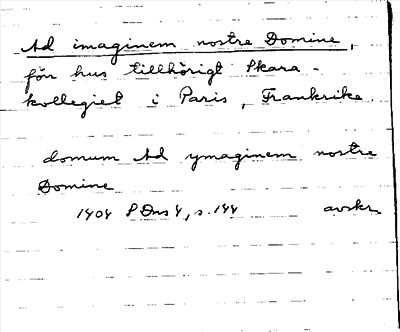 Ad imaginem nostre Domine,
förr hus tillhörigt Skara-
kollegiet i Paris, Frankrike.
domum Ad ymaginem nostre
Domine
1404 PDns 4, s. 144 avskr.